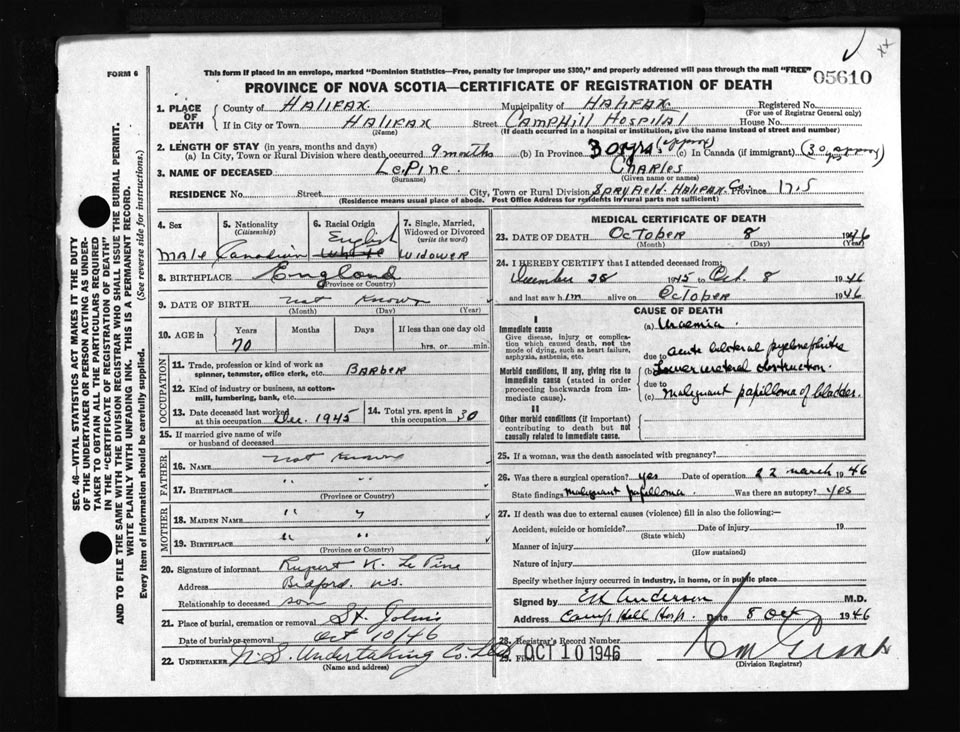 FORM 6
This form if placed in an envelope, marked "Dominion Statistics—Free, penalty for improper use $300," and properly addressed will pass through the mail "FREE"
05610
PROVINCE OF NOVA SCOTIA—CERTIFICATE OF REGISTRATION OF DEATH
1. PLACE OF DEATH
County of HALIFAX Municipality of HALIFAX Registered No.
(For use of Registrar General only)
If in City or Town HALIFAX Street CAMPHILL HOSPITAL House No.
(Name) (If death occurred in a hospital or institution, give the name instead of street and number)
2. LENGTH OF STAY (in years, months and days)
(a) In City, Town or Rural Division where death occurred 9 months (b) In Province 30 yrs (approx) (c) In Canada (if immigrant) (30 yrs approx)
3. NAME OF DECEASED LePine. CHARLES
(Surname) (Given name or names)
RESIDENCE No. Street City, Town or Rural Division Spryfield. Halifax Co. Province N.S
(Residence means usual place of abode. Post Office Address for residents in rural parts not sufficient)
4. Sex MALE
5. Nationality (Citizenship) Canadian
6. Racial Origin English White
7. Single, Married, Widowed or Divorced (write the word) WIDOWER
8. BIRTHPLACE England
(Province or Country)
9. DATE OF BIRTH not Known
(Month) (Day) (Year)
10. AGE in Years Months Days If less than one day old
70 hrs. or min.
OCCUPATION
11. Trade, profession or kind of work as spinner, teamster, office clerk, etc. BARBER
12. Kind of industry or business, as cotton-mill, lumbering, bank, etc.
13. Date deceased last worked at this occupation Dec. 1945
14. Total yrs. spent in this occupation 30
15. If married give name of wife or husband of deceased
FATHER
16. NAME not Known
17. BIRTHPLACE " "
(Province or Country)
MOTHER
18. MAIDEN NAME " "
19. BIRTHPLACE " "
(Province or Country)
20. Signature of informant Rupert K. Le Pine
Address Bedford. N.S.
Relationship to deceased son
21. Place of burial, cremation or removal St. John's
Date of burial or removal Oct 10/46
22. UNDERTAKER N.S. Undertaking Co. Ltd
(Name and address)
MEDICAL CERTIFICATE OF DEATH
23. DATE OF DEATH OCTOBER 8 1946
(Month) (Day) (Year)
24. I HEREBY CERTIFY that I attended deceased from:
December 28 1945 to Oct. 8 1946
and last saw him alive on OCTOBER 1946
CAUSE OF DEATH
I
Immediate cause
Give disease, injury or complication which caused death, not the mode of dying, such as heart failure, asphyxia, asthenia, etc.
(a) Uraemia.
due to acute bilateral pyelonephritis
Morbid conditions, if any, giving rise to immediate cause (stated in order proceeding backwards from immediate cause).
(b) Lower ureteral obstruction.
due to
(c) malignant papilloma of bladder.
II
Other morbid conditions (if important) contributing to death but not causally related to immediate cause.
25. If a woman, was the death associated with pregnancy?
26. Was there a surgical operation? yes Date of operation 22 march 1946
State findings malignant papilloma Was there an autopsy? yes
27. If death was due to external causes (violence) fill in also the following:—
Accident, suicide or homicide? Date of injury 19
(State which)
Manner of injury
(How sustained)
Nature of injury
Specify whether injury occurred in industry, in home, or in public place
Signed by EH Anderson M.D.
Address Camp Hill Hosp. Date 8 Oct 1946
28. Registrar's Record Number
29. Filed OCT 10 1946
(Division Registrar)
SEC. 46—VITAL STATISTICS ACT MAKES IT THE DUTY
OF THE UNDERTAKER OR PERSON ACTING AS UNDER-
TAKER TO OBTAIN ALL THE PARTICULARS REQUIRED
IN THE "CERTIFICATE OF REGISTRATION OF DEATH"
AND TO FILE THE SAME WITH THE DIVISION REGISTRAR WHO SHALL ISSUE THE BURIAL PERMIT.
WRITE PLAINLY WITH UNFADING INK. THIS IS A PERMANENT RECORD.
Every item of information should be carefully supplied. (See reverse side for instructions.)